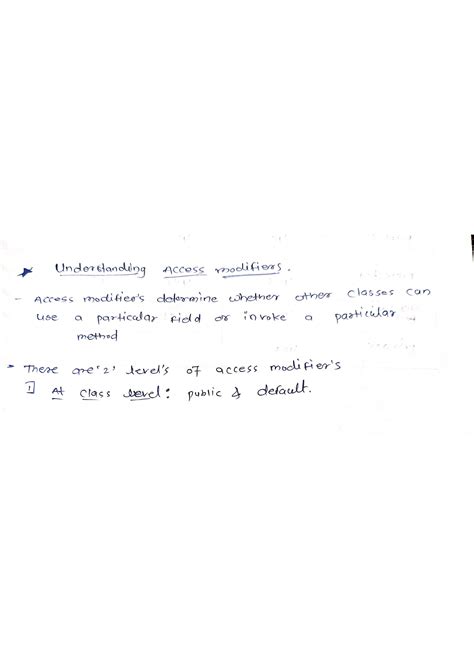 ★ Understanding Access modifiers.
- Access modifier's determine whether other classes can
use a particular field or invoke a particular
method
• There are '2' level's of access modifier's
1] At class level: public & default.